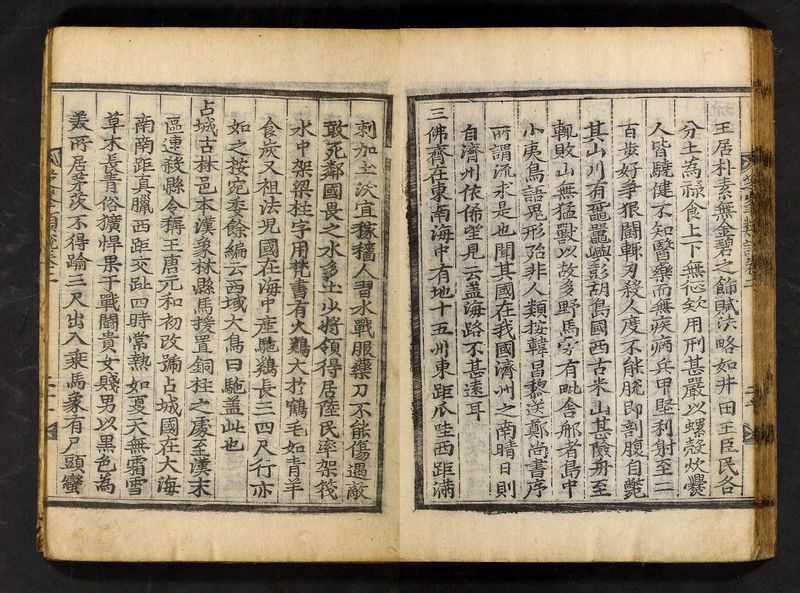 王居朴素無金碧之飾賦法略如井田王臣民各
分土為祿食上下無忒欸用刑甚嚴以螺殼炊爨
人皆驍健不知醫藥而無疾病兵甲堅利射至二
百步好爭狠鬪輒刃殺人度不能脫即剖腹自斃
其山川有黿鼊嶼彭胡島國西古米山甚險舟至
輒敗山無猛獸以故多野馬家有毗舍那者島中
小夷鳥語鬼形殆非人類按韓昌黎送鄭尚書序
所謂流求是也聞其國在我國濟州之南晴日則
自濟州依俙望見云盖海路不甚遠耳
三佛齊在東南海中有地十五州東距爪哇西距滿
剌加土沃宜稼穡人習水戰服藥刀不能傷遇敵
敢死鄰國畏之水多土少將領得居陸民率架筏
水中架梁柱字用梵書有火鷄大於鶴毛如青羊
食炭又祖法兒國在海中產駞鷄長三四尺行亦
如之按宛委餘編云西域大鳥曰駞盖此也
占城古林邑本漢象林縣馬援置銅柱之處至漢末
區連殺縣令稱王唐元和初改號占城國在大海
南南距真臘西距交趾四時常熱如夏天無霜雪
草木長青俗獷悍果于戰鬪貴女賤男以黑色為
美所居茅茨不得踰三尺出入乘馬象有尸頭蠻